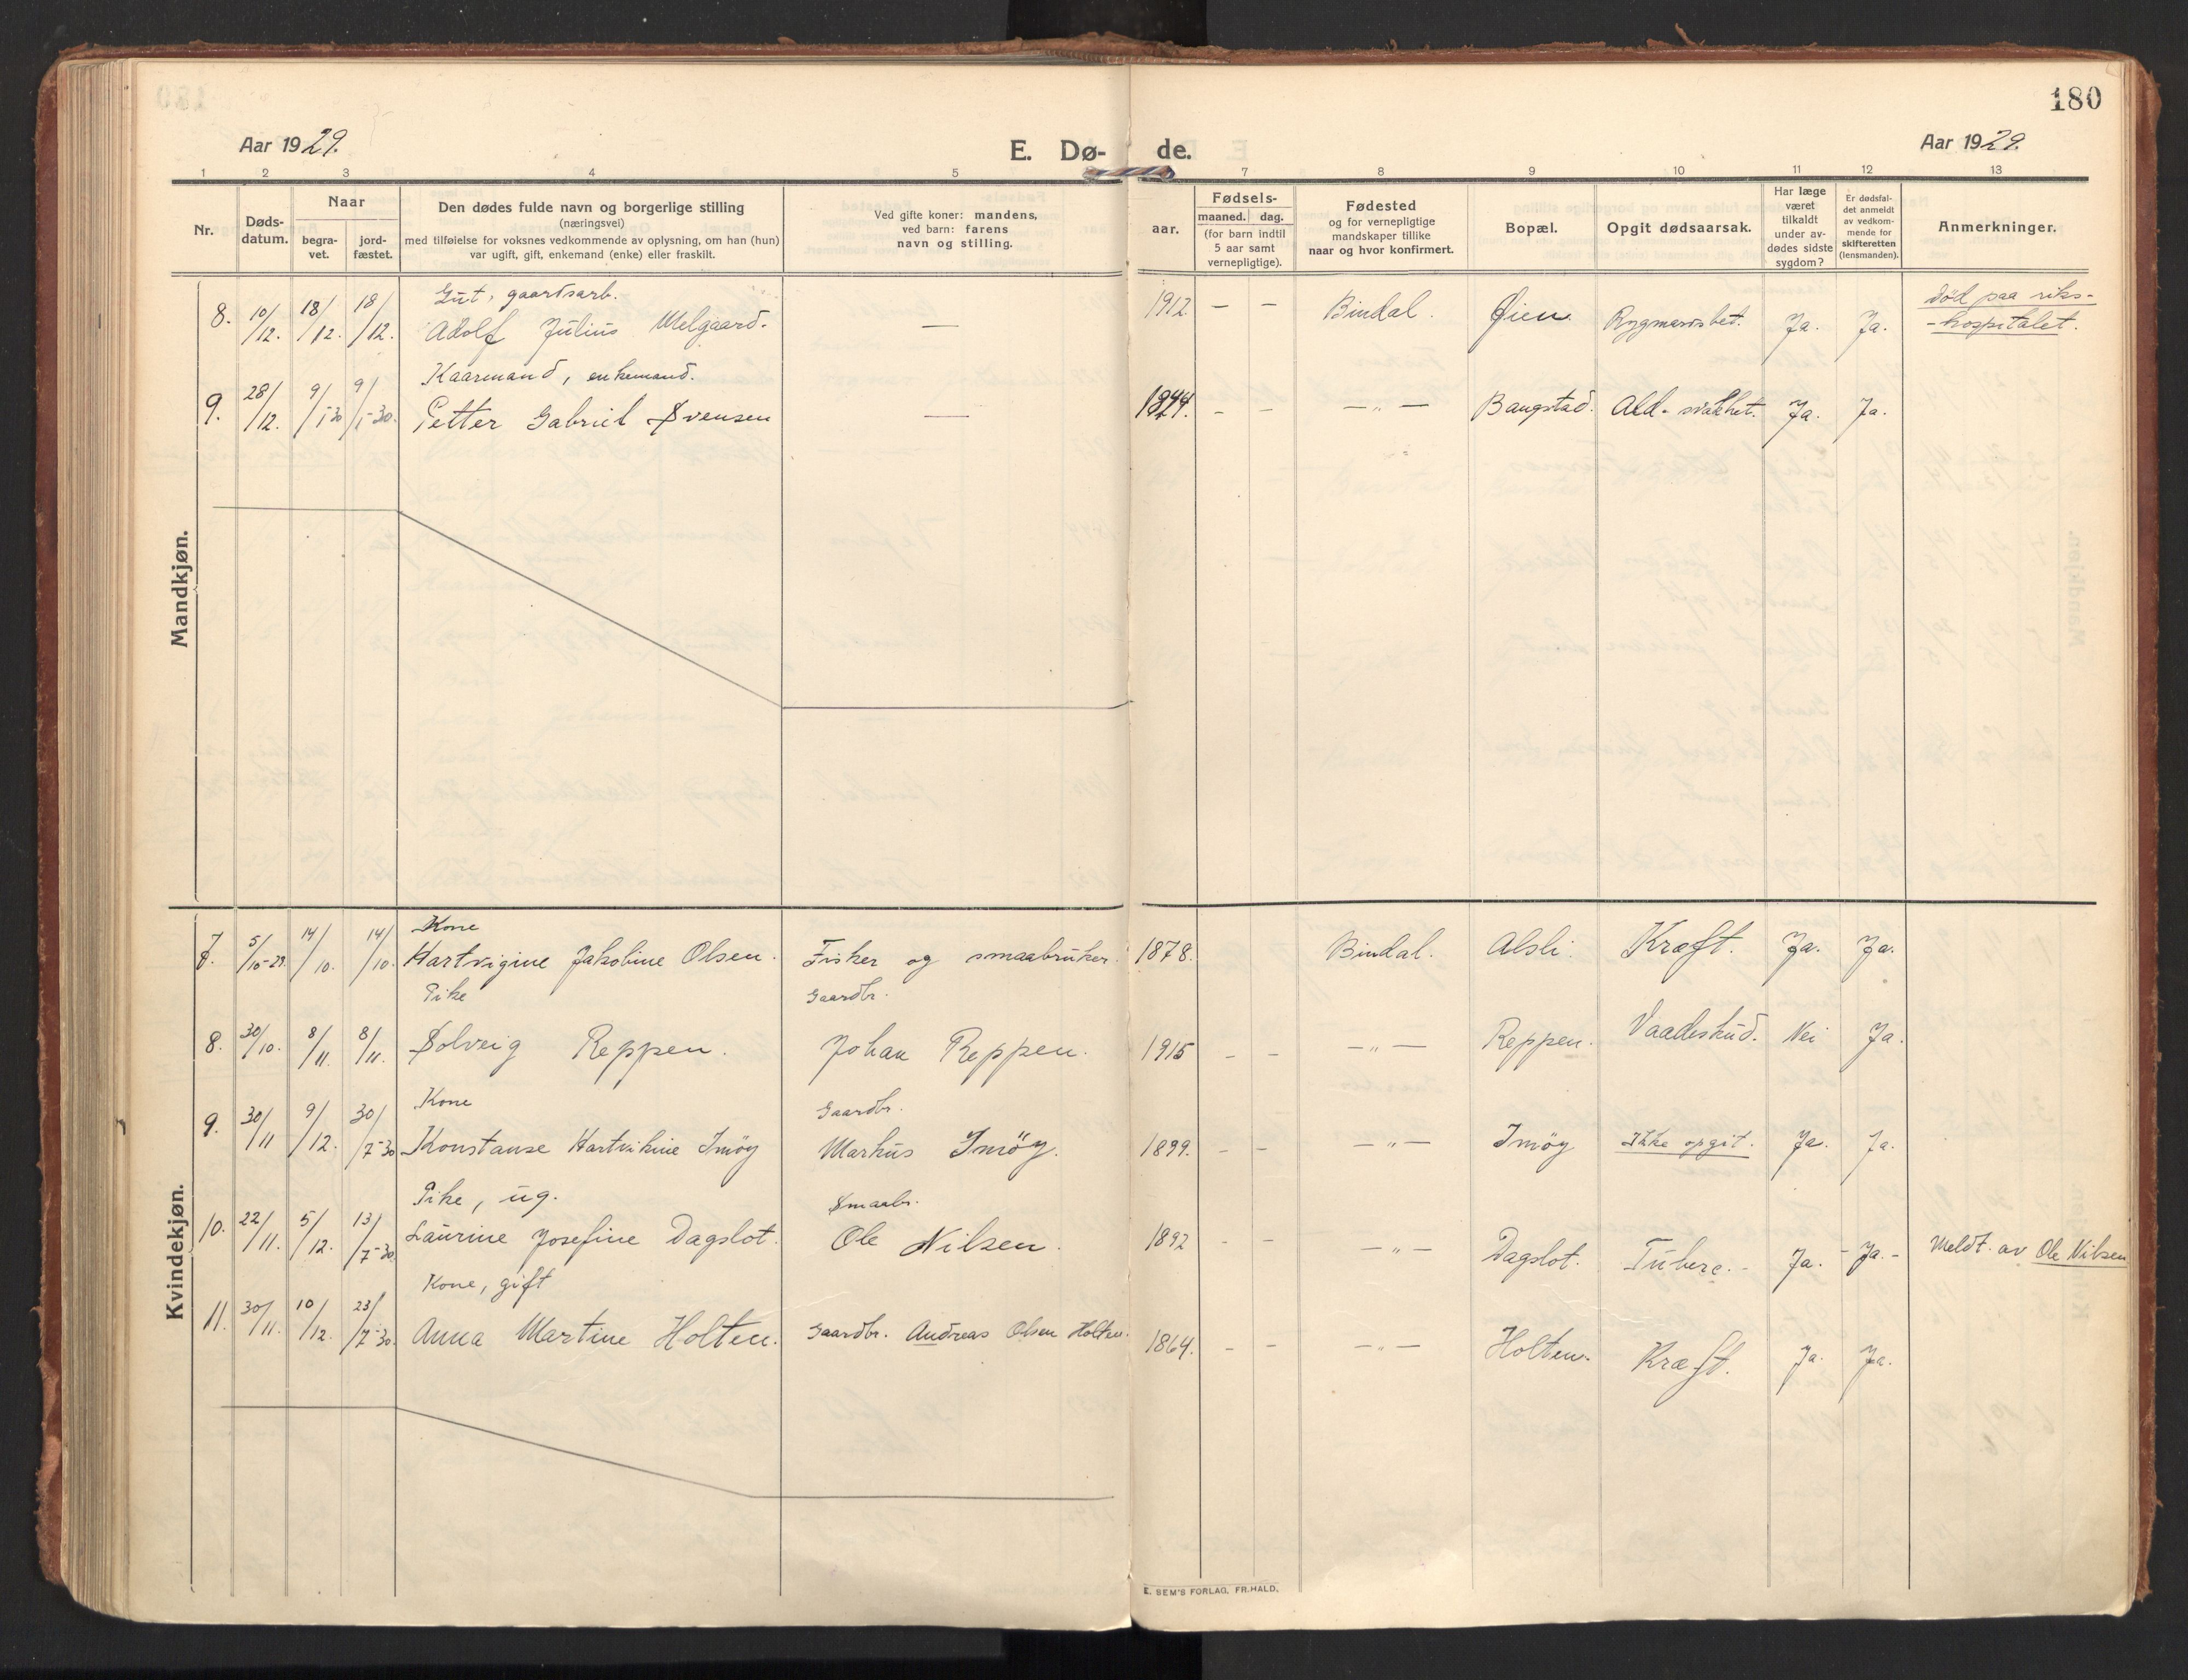 180
Aar 1929.
E. Dø- de.
Aar 1929.
1 2 3 4 5 7 8 9 10 11 12 13
Nr.
Døds-
datum.
Naar
begra-
vet.
jord-
fæstet.
Den dødes fulde navn og borgerlige stilling
(næringsvei)
med tilføielse for voksnes vedkommende av oplysning, om han (hun)
var ugift, gift, enkemand (enke) eller fraskilt.
Ved gifte koner: mandens,
ved barn: farens
navn og stilling.
aar.
Fødsels-
maaned. dag.
(for barn indtil
5 aar samt
vernepligtige).
Fødested
og for vernepligtige
mandskaper tillike
naar og hvor konfirmert.
Bopæl.
Opgit dødsaarsak.
Har læge
været
tilkaldt
under av-
dødes sidste
sygdom?
Er dødsfal-
det anmeldt
av vedkom-
mende for
skifteretten
(lensmanden).
Anmerkninger.
Mandkjøn.
Gut, gaardsarb.
8. 10/12. 18/12. 18/12. Adolf Julius Melgaard. — 1912 — — Bindal. Øien Rygmarvsbet. Ja. Ja. Død paa riks-
-hospitalet.
Kaarmand, enkemand.
9. 28/12. 9/1-30 9/1-30. Petter Gabriel Svensen — 1844. - - —„— Bangstad. Ald-svakhet. Ja. Ja.
Kvindekjøn.
Kone
7. 5/10-29. 14/10. 14/10. Hartvigine Jakobine Olsen. Fisker og smaabruker. 1878. Bindal. Alsli. Kræft. Ja. Ja.
Pike Gaardbr.
8. 30/10. 8/11. 8/11. Solveig Reppen. Johan Reppen. 1915 - - —„— Reppen. Vaadeskud. Nei Ja.
Kone Gaardbr.
9. 30/11 9/12. 30/7-30 Konstanse Hartvikine Imöy Markus Imöy. 1899. - - —„— Imöy Ikke opgit. Ja. Ja.
Pike, ug. Smaabr.
10. 22/11. 5/12. 13/7-30 Laurine Josefine Dagslot. Ole Nilsen. 1892 - - —„— Dagslot. Tuberc. - Ja. - Ja. - Meldt. av Ole Nilsen
Kone, gift
11. 30/11. 10/12. 23/7-30. Anna Martine Holten. Gaardbr. Andreas Olsen Holten. 1864. - - —„— Holten. Kræft. Ja. Ja.
E. SEM'S FORLAG, FR.HALD.